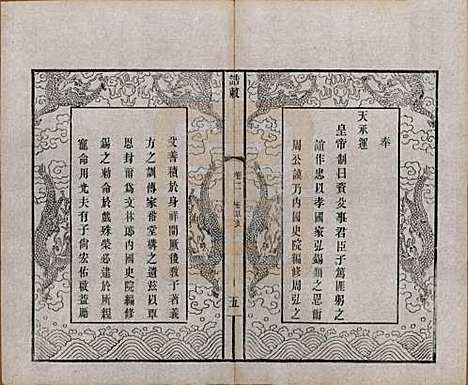 奉
天承運
皇帝制曰資父事君臣子篤匪躬之
誼作忠以孝國家弘錫類之恩爾
周公謨乃內國史院編修周弘之
誥敕
卷一
五
父善積於身祥開厥後教子著義
方之訓傳家裕堂構之遺茲以覃
恩封爾為文林郎內國史院編修
錫之勅命於戲殊榮必逮於所親
寵命用光夫有子尚宏佑啟益勵